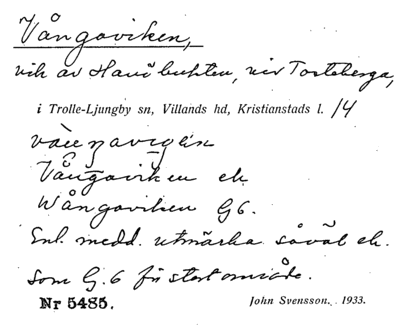 Vångaviken,
vik av Hanöbukten, vid Tosteberga,
i Trolle-Ljungby sn, Villands hd, Kristianstads l. 14
Vångaviken ek
Wångaviken G6.
Enl. medd. utmärka såväl ek.
som G.6 för stort område.
Nr 5485.
John Svensson. 1933.